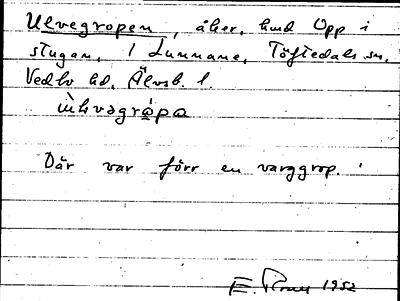 Ulvegropen, åker, hmd Opp i
stugan, 1 Lunnane, Töftedals sn,
Vedbo hd, Älvsb. l.
Där var förr en varggrop.
E. 1952